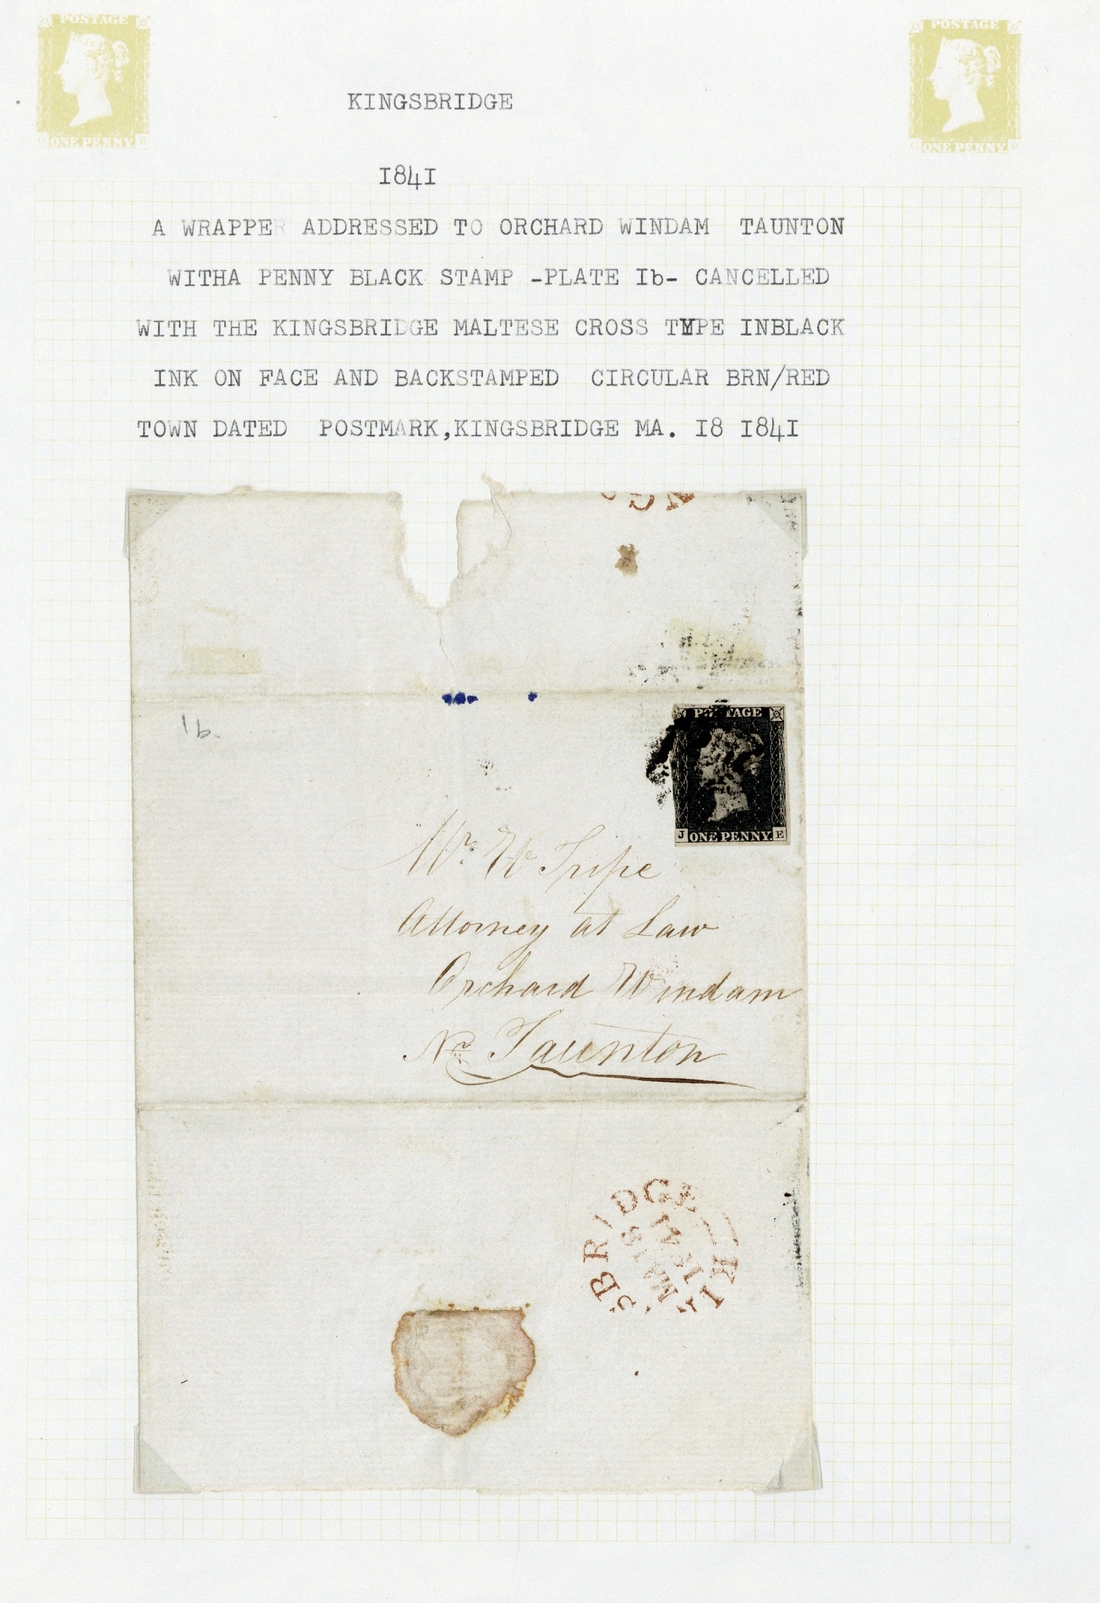 POSTAGE
ONE PENNY
POSTAGE
ONE PENNY
KINGSBRIDGE
1841
A WRAPPER ADDRESSED TO ORCHARD WINDAM TAUNTON
WITHA PENNY BLACK STAMP -PLATE Ib- CANCELLED
WITH THE KINGSBRIDGE MALTESE CROSS TYPE INBLACK
INK ON FACE AND BACKSTAMPED CIRCULAR BRN/RED
TOWN DATED POSTMARK,KINGSBRIDGE MA. 18 1841
1b.
POSTAGE
J ONE PENNY. E
Mr. W Tripe
Attorney at Law
Orchard Windam
Nr Taunton
SBRIDGE
MA 18
1841
KI